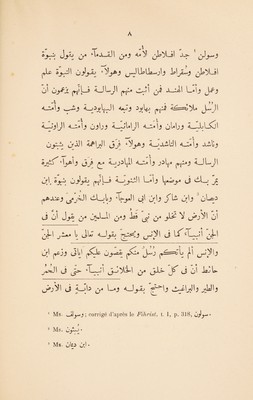 ٨
وسولن¹ جدّ افلاطن لأُمّه ومن القدمآء من يقول بنبوّة
افلاطن وسُقراط وارسطاطاليس وهولآء يقولون النبوّة علم
وعمل وأمّا الهند فمن أثبت منهم الرسالة فإنّهم يزعمون أنّ
الرُسُل ملائكة فمنهم بهابود وتبعه البهابوديـة وشب وأمّتـه
الكابليّـة ورامان وأمّتـه الرامانيّـة وراون وأمّتـه الراونيّة
وناشد وأمّته الناشديّـة وهولآء فِرَق البراهمة الذين يثبتون²
الرسالـة ومنهم مهادر وأمّته المهادرية مع فِرَق وأهوآء كثيرة
يمرّ بـك فى موضعها وأمّا الثنويّـة فـإنّهم يقولون بنبوّة ابن
ديصان³ وابن شاكر وابن ابى العوجآء وبابك الخُرّمى وعندهم
أنّ الأرض لا تخلو من نبىّ قطّ ومن المسلمين من يقول أنّ فى
الجنّ أنبيـآء كما فى الإنس ويحتجّ بقولـه تعالى يا معشر الجنّ
والإنس ألم يأتكم رُسُل منكم يقصّون عليكم آياتى وزعم ابن
حائط أنّ فى كلّ خلق من الخلائـق أنبيـآء حتّى فى الحُمُر
والطير والبراغيث واحتجّ بقولـه وما من دابّـة فى الأرض
¹ Ms. وسولف; corrigé d'après le Fihrist, t. I, p. 318, سولون.
² Ms. يُبثون.
³ Ms. ابن ديهان.